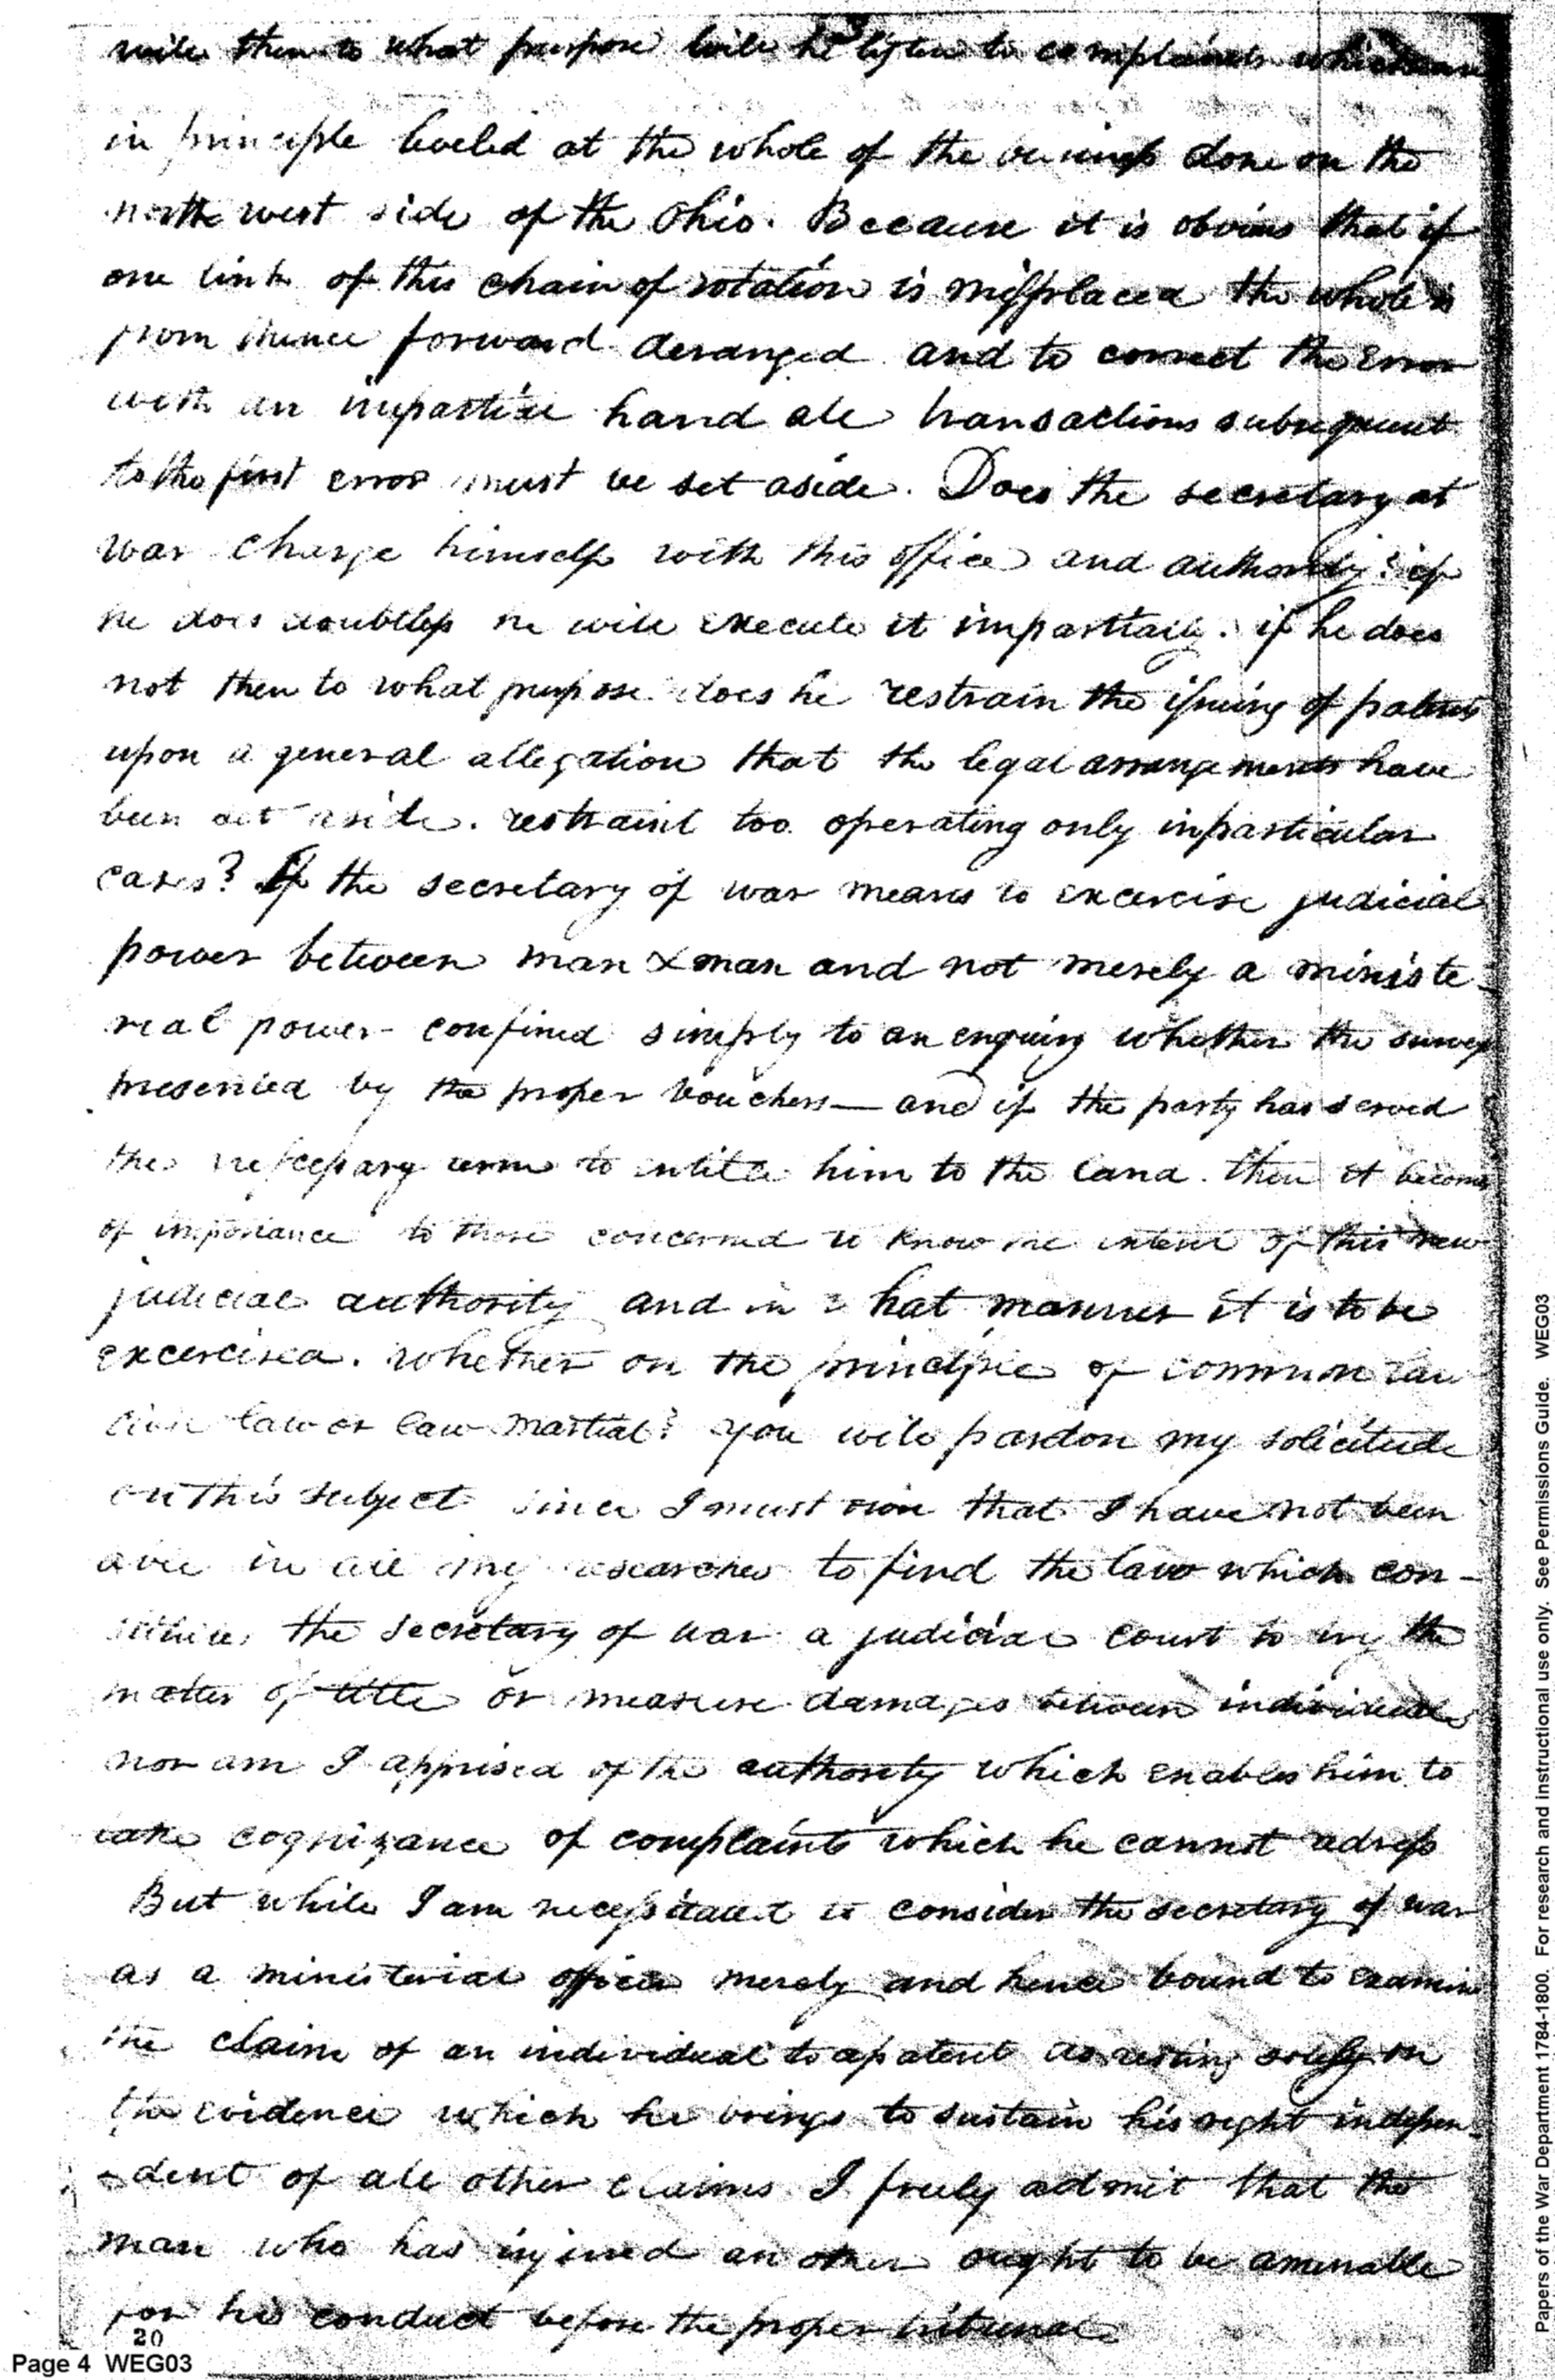 will then to what purpose will he listen to complaints which are
in principle leveled at the whole of the business done on the
north west side of the Ohio. Because it is obvious that if
one link of this chain of rotation is misplaced the whole is
from thence forward deranged and to correct the error
with an impartial hand all transactions subsequent
to the first error must be set aside. Does the secretary at
war charge himself with this office and authority? if
he does doubtless he will execute it impartially. if he does
not then to what purpose does he restrain the issuing of patents
upon a general allegation that the legal arrangements have
been set aside. restraint too operating only in particular
cases? If the secretary of war means to excercise judicial
power between man & man and not merely a ministe-
rial power confined simply to an enquiry whether the survey
presented by the proper vouchers— and if the party has served
the nescessary term to intitle him to the land. then it becomes
of importance to those concerned to know the extent of this new
judicial authority and in what manner it is to be
excercised. whether on the principle of common law
civil law or law martial? you will pardon my solicitude
on this subject since I must own that I have not been
able in all my researches to find the law which con-
stitutes the secretary of war a judicial court to try the
matter of title or measure damages between individuals
nor am I apprised of the authority which enables him to
take cognizance of complaints which he cannot redress
But while I am necessitated to consider the secretary of war
as a ministerial officer merely and hence bound to examine
the claim of an individual to a patent as resting solely on
the evidence which he brings to sustain his right indepen-
-dent of all other claims I freely admit that the
man who has injured an other ought to be amenable
for his conduct before the proper tribunal.
20
Page 4 WEG03
Papers of the War Department 1784-1800. For research and instructional use only. See Permissions Guide. WEG03